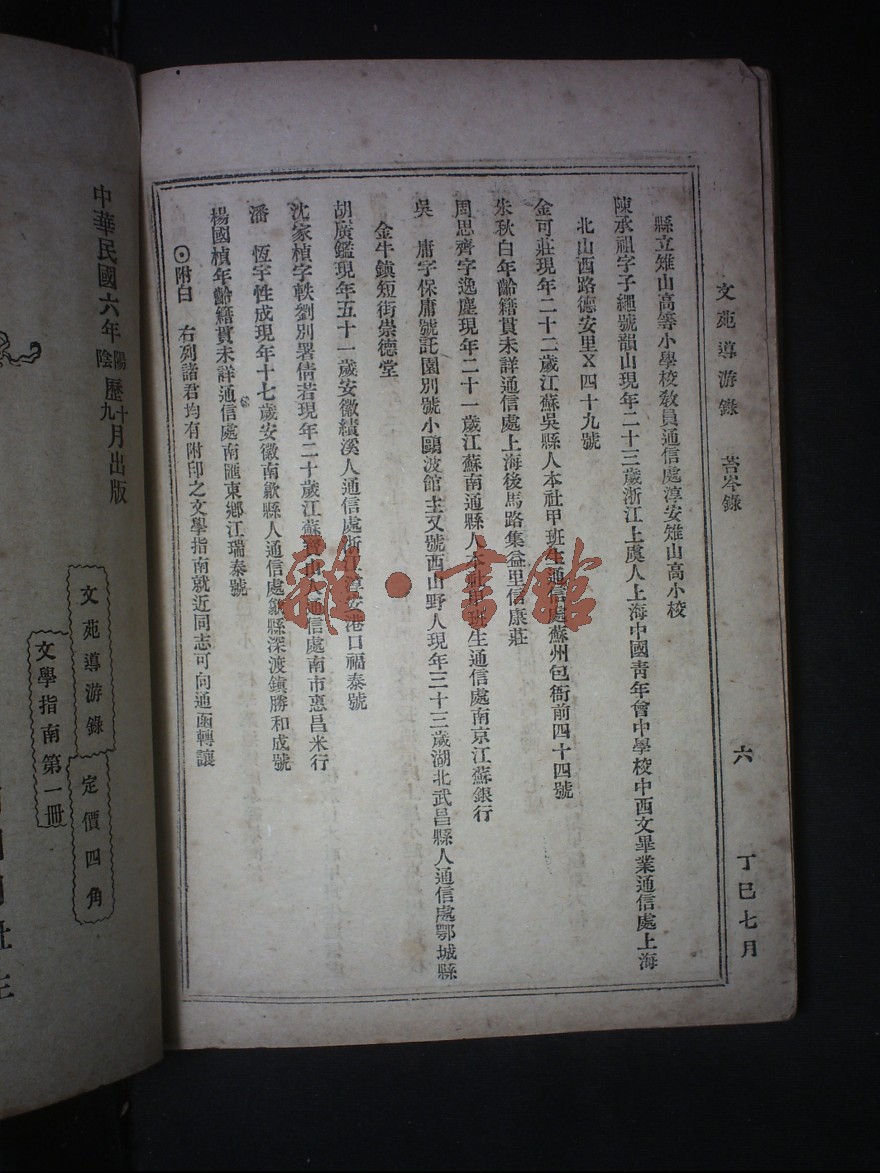 文苑導游錄 苔岑錄 六 丁巳七月
縣立雉山高等小學校敎員通信處淳安雉山高小校
陳承祖字子繩號韻山現年二十三歲浙江上虞人上海中國靑年會中學校中西文畢業通信處上海
北山西路德安里X四十九號
金可莊現年二十二歲江蘇吳縣人本社甲班生通信處蘇州包衙前四十四號
朱秋白年齡籍貫未詳通信處上海後馬路集益里信康莊
周思齊字逸塵現年二十一歲江蘇南通縣人本社班生通信處南京江蘇銀行
吳 庸字保庸號託園別號小鷗波館主又號西山野人現年三十三歲湖北武昌縣人通信處鄂城縣
金牛鎭短街崇德堂
胡廣鑑現年五十一歲安徽績溪人通信處浙江淳安港口福泰號
沈家楨字軼劉別署倩若現年二十歲江蘇寶山人通信處南市惠昌米行
潘 恆字性成現年十七歲安徽南歙縣人通信處歙縣深渡鎭勝和成號
楊國楨年齡籍貫未詳通信處南匯東鄕江瑞泰號
⊙附白 右列諸君均有附印之文學指南就近同志可向通函轉讓
雜·書館
中華民國六年陽歷十月出版
陰歷九月
文苑導游錄 定價四角
文學指南第一冊
社主